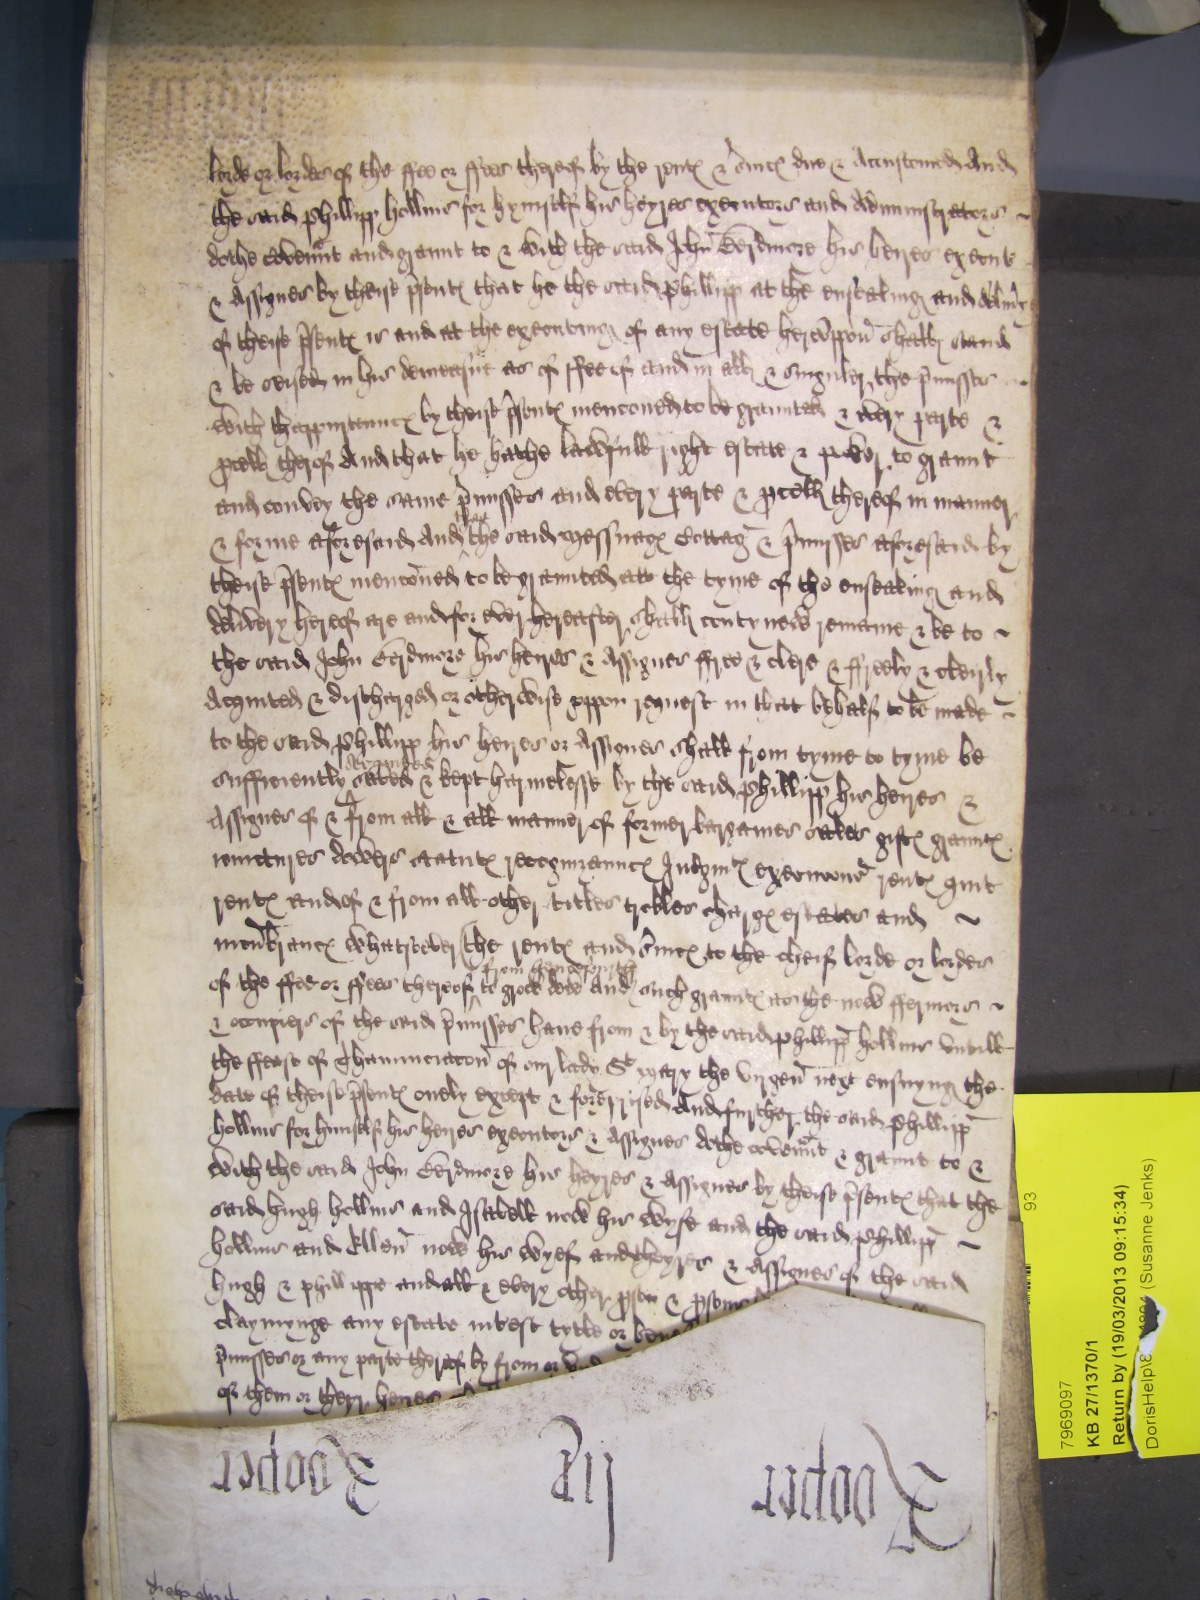 lorde or lordes of the ffee or ffees thereof by the rentℯ & s'uicℯ due & Accustomed And
the said Phillipp hollins for hymself his heyres executors and Administrators ~
dothe covennt and graunt to & with the said John Cerdmore his heires execut
& Assignes by theise p'sentℯ that he the said Phillipp at the ensealing and deliu'y
of theise p'sentℯ is and at the executing of any estate hereuppon shall stand
& be seised in his demeasne as of ffee of and in all & singuler the p'misses ~
with thappurtenncℯ by theise p'sentℯ menconed to be graunted & euery parte &
p'cell therof And that he hathe lawfull right estate & power to graunt
and convey the same p'misses and every parte & p'cell thereof in manner
& forme aforesaid And that the said messuagℯ Cottag & p'misses aforesaid by
theise p'sentℯ menconed to be graunted att the tyme of the ensealing and
delivery hereof are and for ever hereafter shall contynew remaine & be to ~
the said John Cerdmore his heires & Assignes ffree & clere & ffreely & clerely
Acquited & discharged or otherwise uppon request in that behalf to be made ~
to the said Phillipp his heires or Assignes shall from tyme to tyme be
sufficiently acquited saved & kept harmelesse by the said Phillipp his heires &
Assignes of & from all & all manner of former bargaines sales giftℯ grauntℯ
ioinctures dowers statutℯ recognizanncℯ Iudgm'tℯ execucons rentℯ quit
rentℯ and of & from all other titles trobles chargℯ estates and ~
incu'brancℯ whatsoever the rentℯ and s'uicℯ to the cheif lorde or lordes
of the ffee or ffees thereof from hencefourth to grow dew And such grauntℯ as the now ffermers ~
& occupiers of the said p'misses have from & by the said Phillipp hollins vntill
the ffeast of Thannunciacon of our lady St mary the virgen next ensuyng the
date of theise p'sentℯ onely except & foreprised And further the said Phillipp
hollins for himself his heires executors & Assignes dothe covennt & graunt to &
with the said John Cerdmore his heyres & Assignes by theise p'sentℯ that the
said hugh hollins and Isabell now his wyfe and the said Phillipp ~
hollins and Ellen now his wyef and theyres & Assignes of the said
hugh & Phillippe and all & every other p'son & p'sons
claymynge any estate int'est tytle or
p'misses or any parte thereof by from or
of them or their heires
Rooper
Rooper
7969097
KB 27/1370/1
Return by (19/03/2013 09:15:34)
(Susanne Jenks)
93